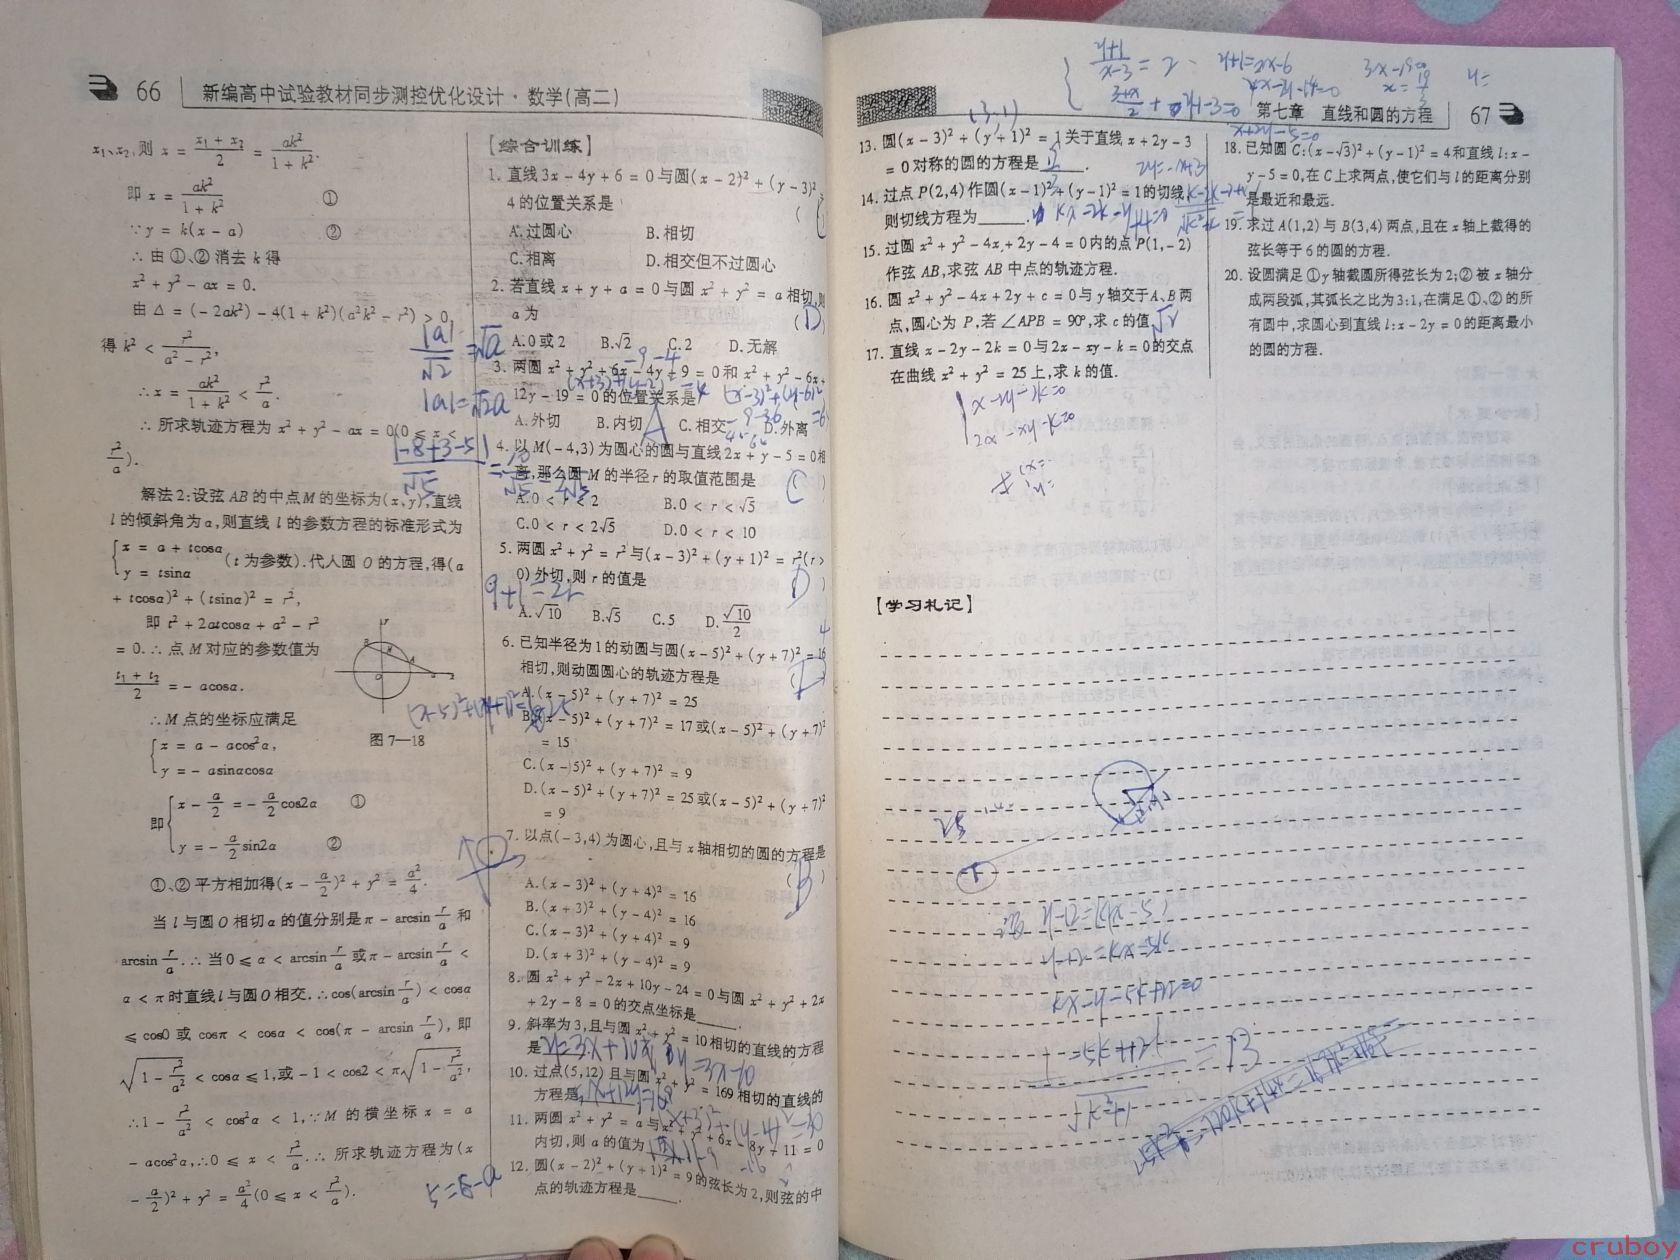 66 新编高中试验教材同步测控优化设计·数学(高二)
x₁、x₂,则 x = (x₁ + x₂)/2 = ak²/(1 + k²).
即 x = ak²/(1 + k²) ①
∵y = k(x - a) ②
∴由①、②消去 k 得
x² + y² - ax = 0.
由 Δ = (- 2ak²) - 4(1 + k²)(a²k² - r²) > 0,
得 k² < r²/(a² - r²),
∴x = ak²/(1 + k²) < r²/a.
∴所求轨迹方程为 x² + y² - ax = 0(0 ≤ x <
r²/a).
解法 2:设弦 AB 的中点 M 的坐标为(x,y),直线
l 的倾斜角为 α,则直线 l 的参数方程的标准形式为
{x = a + tcosα
y = tsinα (t 为参数).代入圆 O 的方程,得(a
+ tcosα)² + (tsinα)² = r²,
即 t² + 2atcosα + a² - r²
= 0.∴点 M 对应的参数值为
(t₁ + t₂)/2 = - acosα.
∴M 点的坐标应满足
{x = a - acos²α,
y = - asinαcosα
图 7—18
即{x - a/2 = - a/2 cos2α ①
y = - a/2 sin2α ②
①、②平方相加得(x - a/2)² + y² = a²/4.
当 l 与圆 O 相切 α 的值分别是 π - arcsin r/a 和
arcsin r/a.∴当 0 ≤ α < arcsin r/a 或 π - arcsin r/a <
α < π 时直线 l 与圆 O 相交.∴cos(arcsin r/a) < cosα
≤ cos0 或 cosπ < cosα < cos(π - arcsin r/a),即
√(1 - r²/a²) < cosα ≤ 1,或 - 1 < cos2 < π√(1 - r²/a²),
∴1 - r²/a² < cos²α < 1,∵M 的横坐标 x = a
- acos²α,∴0 ≤ x < r²/a.∴所求轨迹方程为(x
- a/2)² + y² = a²/4 (0 ≤ x < r²/a).
5=6-a
【综合训练】
1. 直线 3x - 4y + 6 = 0 与圆(x - 2)² + (y - 3)²
4 的位置关系是
A.过圆心 B.相切
C.相离 D.相交但不过圆心
2. 若直线 x + y + a = 0 与圆 x² + y² = a 相切,则
a 为 (D)
|a|/√2=√a
A.0 或 2 B.√2 C.2 D.无解
|a|=√2a
3. 两圆 x² + y² + 6x - 4y + 9 = 0 和 x² + y² - 6x +
-9-4
(x+3)+(y-2)=4 (x-3)²+(y-6)²
12y - 19 = 0 的位置关系是
A
A.外切 B.内切 C.相交 D.外离
-9-36
4. 以 M(- 4,3)为圆心的圆与直线 2x + y - 5 = 0 相
离,那么圆 M 的半径 r 的取值范围是 (C)
|-8+3-5|/√5=10/√5=2√5
A.0 < r < 2 B.0 < r < √5
C.0 < r < 2√5 D.0 < r < 10
5. 两圆 x² + y² = r² 与(x - 3)² + (y + 1)² = r²(r >
0)外切,则 r 的值是 (D)
9+1=2r
A.√10 B.√5 C.5 D.√10/2
6. 已知半径为 1 的动圆与圆(x - 5)² + (y + 7)² = 16
4
相切,则动圆圆心的轨迹方程是 (D)
A.(x - 5)² + (y + 7)² = 25
B.(x - 5)² + (y + 7)² = 17 或(x - 5)² + (y + 7)²
= 15
C.(x - 5)² + (y + 7)² = 9
D.(x - 5)² + (y + 7)² = 25 或(x - 5)² + (y + 7)²
= 9
7. 以点(- 3,4)为圆心,且与 x 轴相切的圆的方程是
(B)
A.(x - 3)² + (y + 4)² = 16
B.(x + 3)² + (y - 4)² = 16
C.(x - 3)² + (y + 4)² = 9
D.(x + 3)² + (y - 4)² = 9
8. 圆 x² + y² - 2x + 10y - 24 = 0 与圆 x² + y² + 2x
+ 2y - 8 = 0 的交点坐标是______.
9. 斜率为 3,且与圆 x² + y² = 10 相切的直线的方程
是 y=3x+10或y=3x-10
10. 过点(5,12)且与圆 x² + y² = 169 相切的直线的
方程是 5x+12y=168
11. 两圆 x² + y² = a 与 x² + y² + 6x - 8y - 11 = 0
内切,则 a 的值为
12. 圆(x - 2)² + (y + 1)² = 9 的弦长为 2,则弦的中
点的轨迹方程是______.
第七章 直线和圆的方程 67
{(y+1)/(x-3)=2
y+1=2x-6
3x-19=0
x=19/3
y=
x+2y-5=0
(3,-1)
13. 圆(x - 3)² + (y + 1)² = 1 关于直线 x + 2y - 3
= 0 对称的圆的方程是______.
2y=-x+3
14. 过点 P(2,4)作圆(x - 1)² + (y - 1)² = 1 的切线,
则切线方程为______.
kx-2k-y+4=0
15. 过圆 x² + y² - 4x + 2y - 4 = 0 内的点 P(1, - 2)
作弦 AB,求弦 AB 中点的轨迹方程.
16. 圆 x² + y² - 4x + 2y + c = 0 与 y 轴交于 A、B 两
点,圆心为 P,若∠APB = 90°,求 c 的值.
17. 直线 x - 2y - 2k = 0 与 2x - xy - k = 0 的交点
在曲线 x² + y² = 25 上,求 k 的值.
{x-2y-2k=0
2x-xy-k=0
{x=
y=
18. 已知圆 C:(x - √3)² + (y - 1)² = 4 和直线 l:x -
y - 5 = 0,在 C 上求两点,使它们与 l 的距离分别
是最近和最远.
19. 求过 A(1,2)与 B(3,4)两点,且在 x 轴上截得的
弦长等于 6 的圆的方程.
20. 设圆满足①y 轴截圆所得弦长为 2;②被 x 轴分
成两段弧,其弧长之比为 3:1,在满足①、②的所
有圆中,求圆心到直线 l:x - 2y = 0 的距离最小
的圆的方程.
【学习札记】
25
cruboy